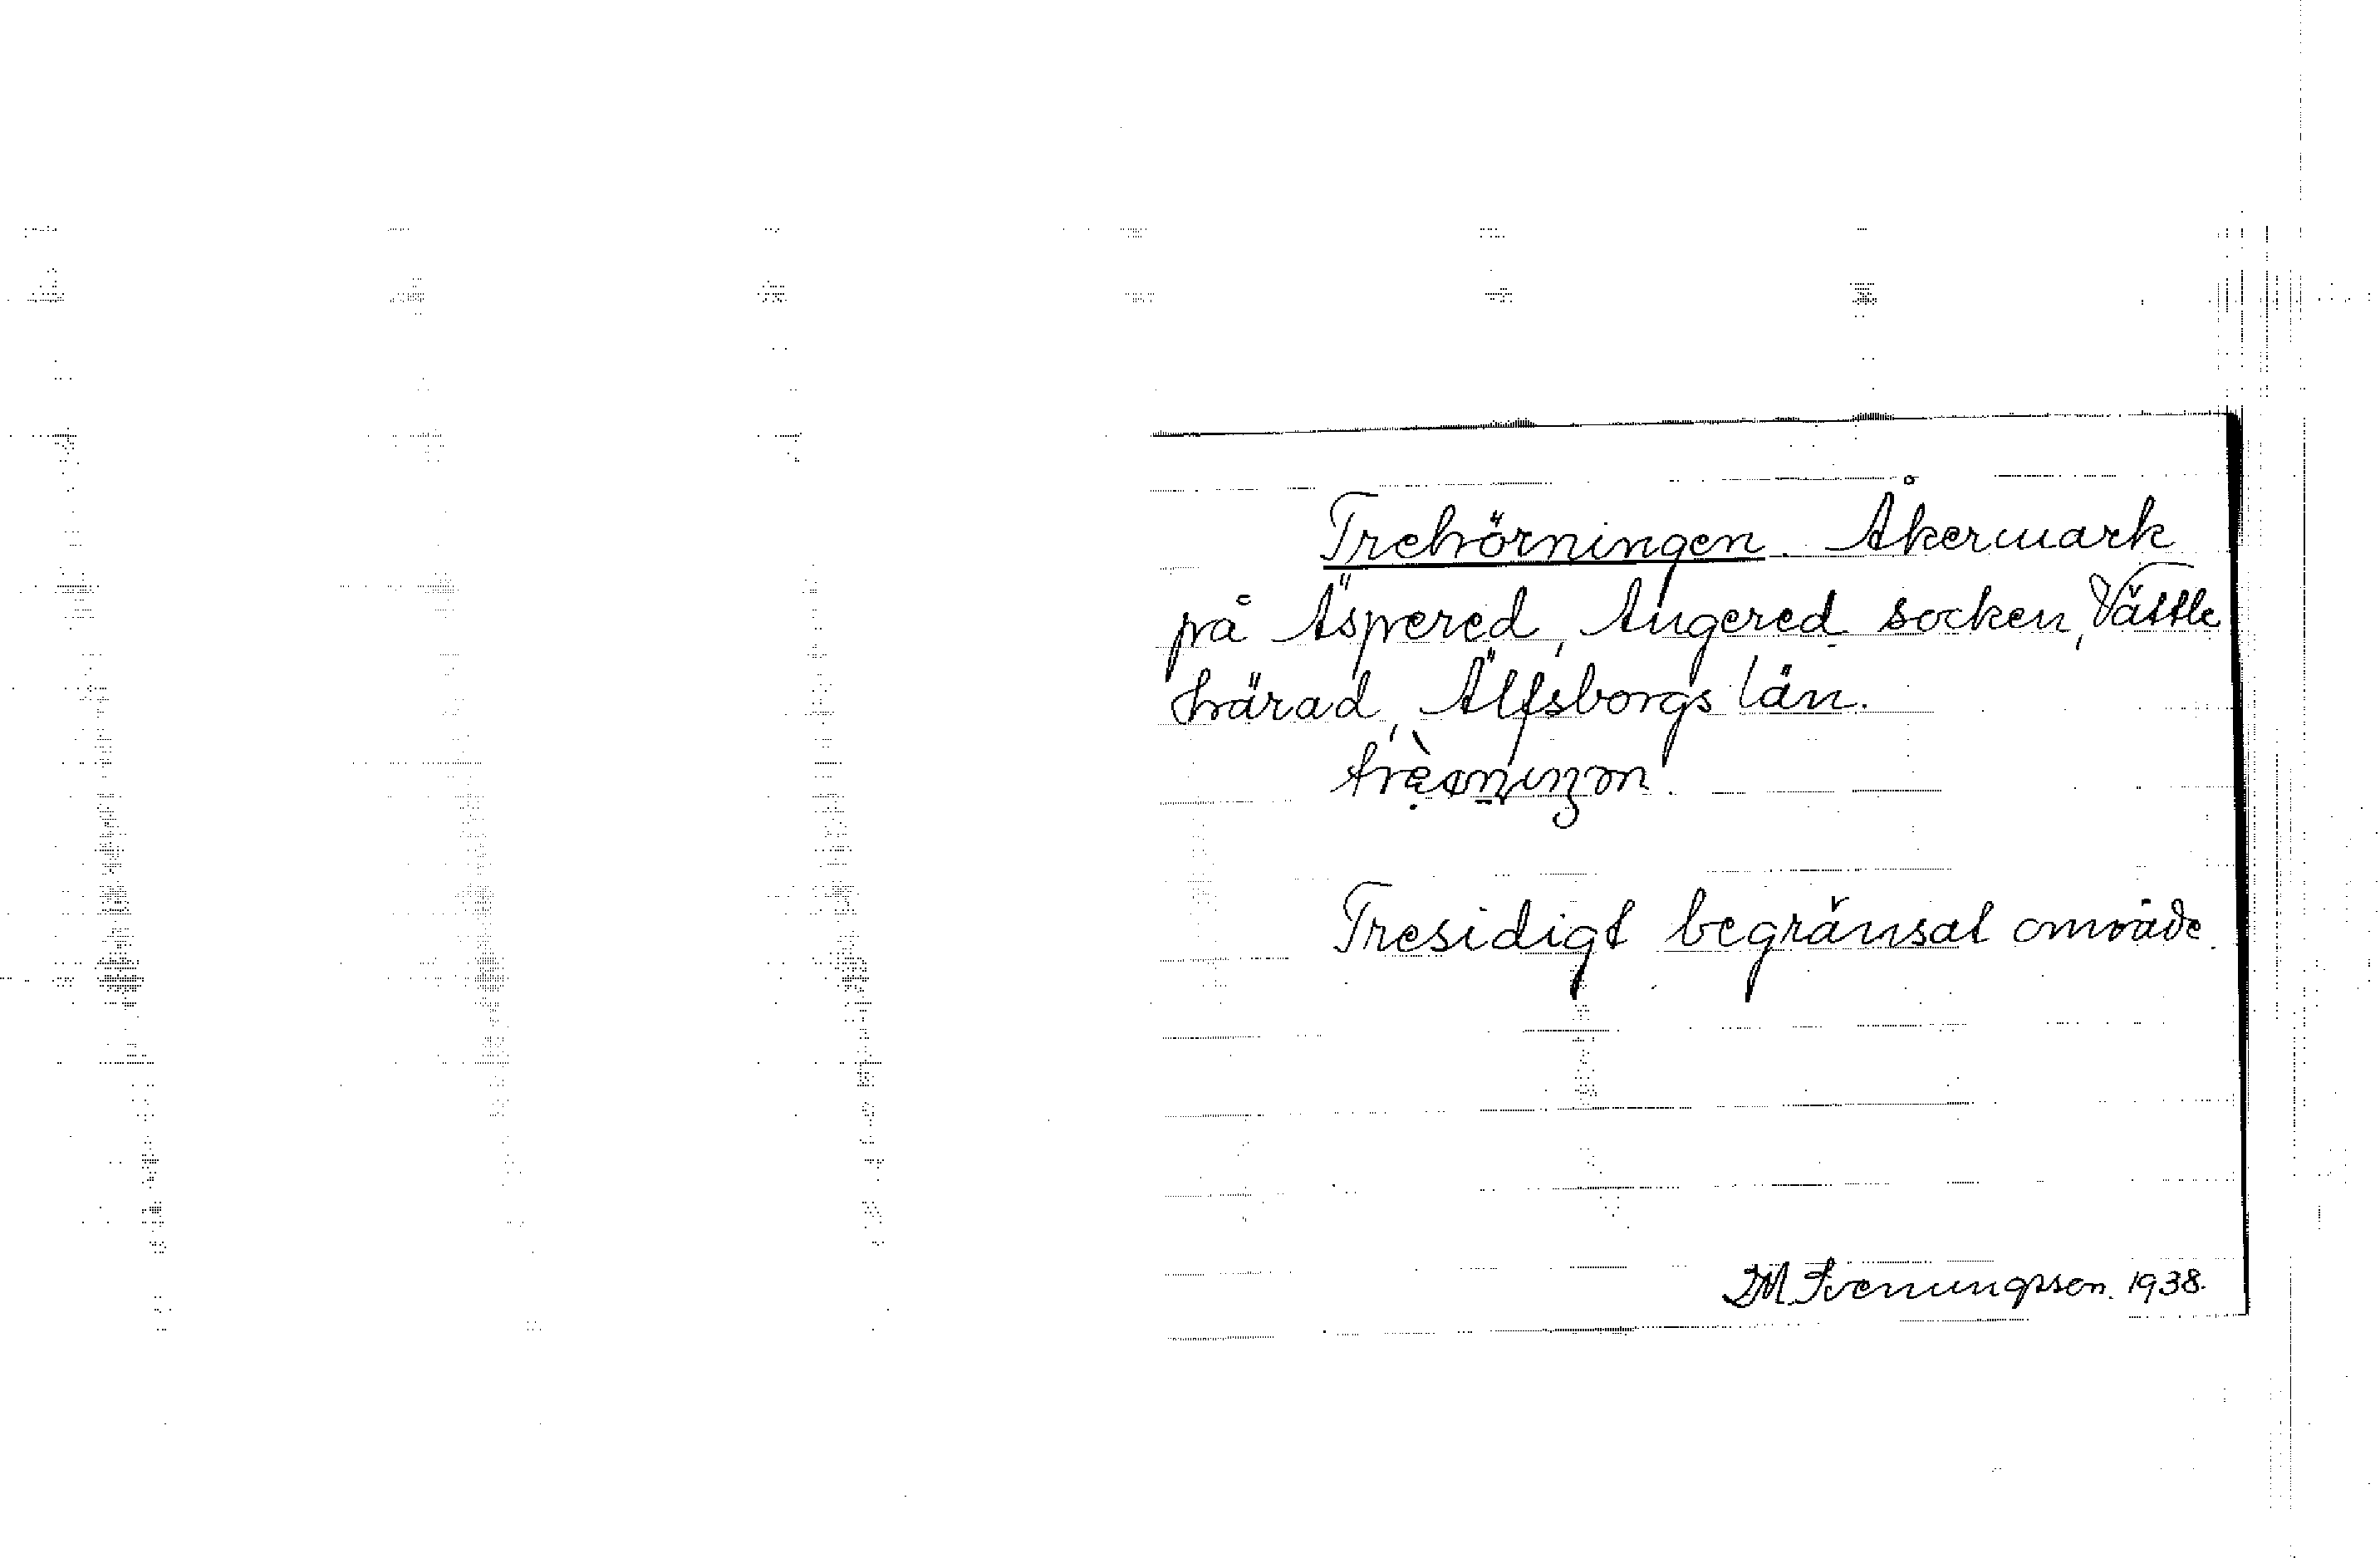 Trehörningen. Åkermark
på Äspered, Angered socken, Vättle
härad, Älfsborgs län.
Tresidigt begränsat område.
IM Svenungsson. 1938.